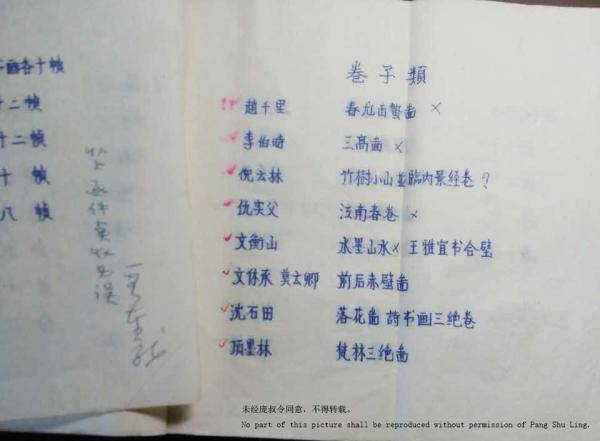 各十帧
十二帧
十二帧
十 帧
八 帧
卷子類
趙千里 春龙出蟄畵 ×
李伯時 三高畵 ×
倪云林 竹樹小山並臨内景经卷?
仇实父 江南春卷 ×
文衡山 水墨山水× 王雅宜书合壁
文休承 莫云卿 前后赤壁畵
沈石田 落花畵 詩书画三绝卷
項墨林 梵林三绝畵
未经庞叔令同意，不得转载。
No part of this picture shall be reproduced without permission of Pang Shu Ling.